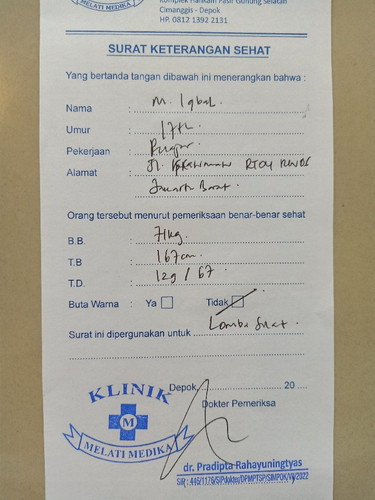 MELATI MEDIKA
Komplek Hankam Pasir Gunung Selatan
Cimanggis - Depok
HP. 0812 1392 2131
SURAT KETERANGAN SEHAT
Yang bertanda tangan dibawah ini menerangkan bahwa :
Nama : M. Iqbal.
Umur : 17th.
Pekerjaan : Pelajar.
Alamat : Jl. RT04
Jakarta Barat.
Orang tersebut menurut pemeriksaan benar-benar sehat
B.B. : 71kg.
T.B : 167cm.
T.D. : 129 / 67.
Buta Warna : Ya Tidak
Surat ini dipergunakan untuk Lomba Silat.
Depok, 20 ....
Dokter Pemeriksa
KLINIK
M
MELATI MEDIKA
dr. Pradipta Rahayuningtyas